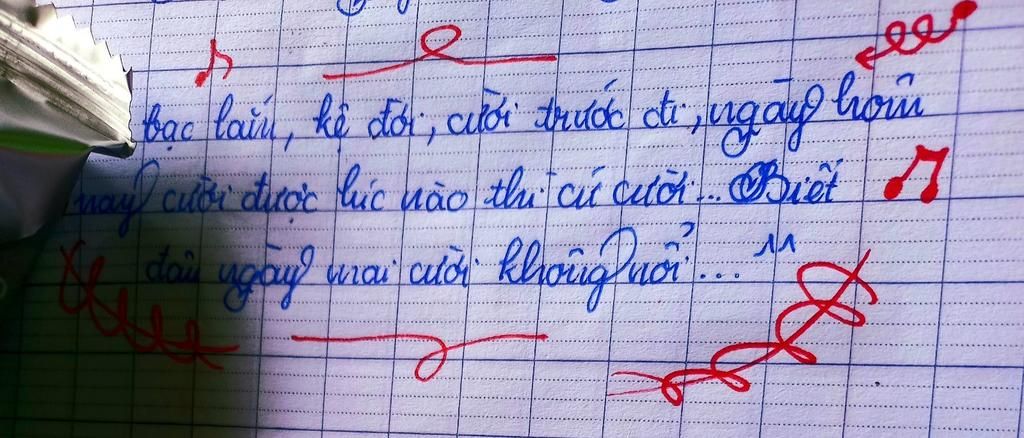 bạc lắm, kệ đời, cười trước đi, ngày hôm
nay cười được lúc nào thì cứ cười... Biết
đâu ngày mai cười không nổi... "